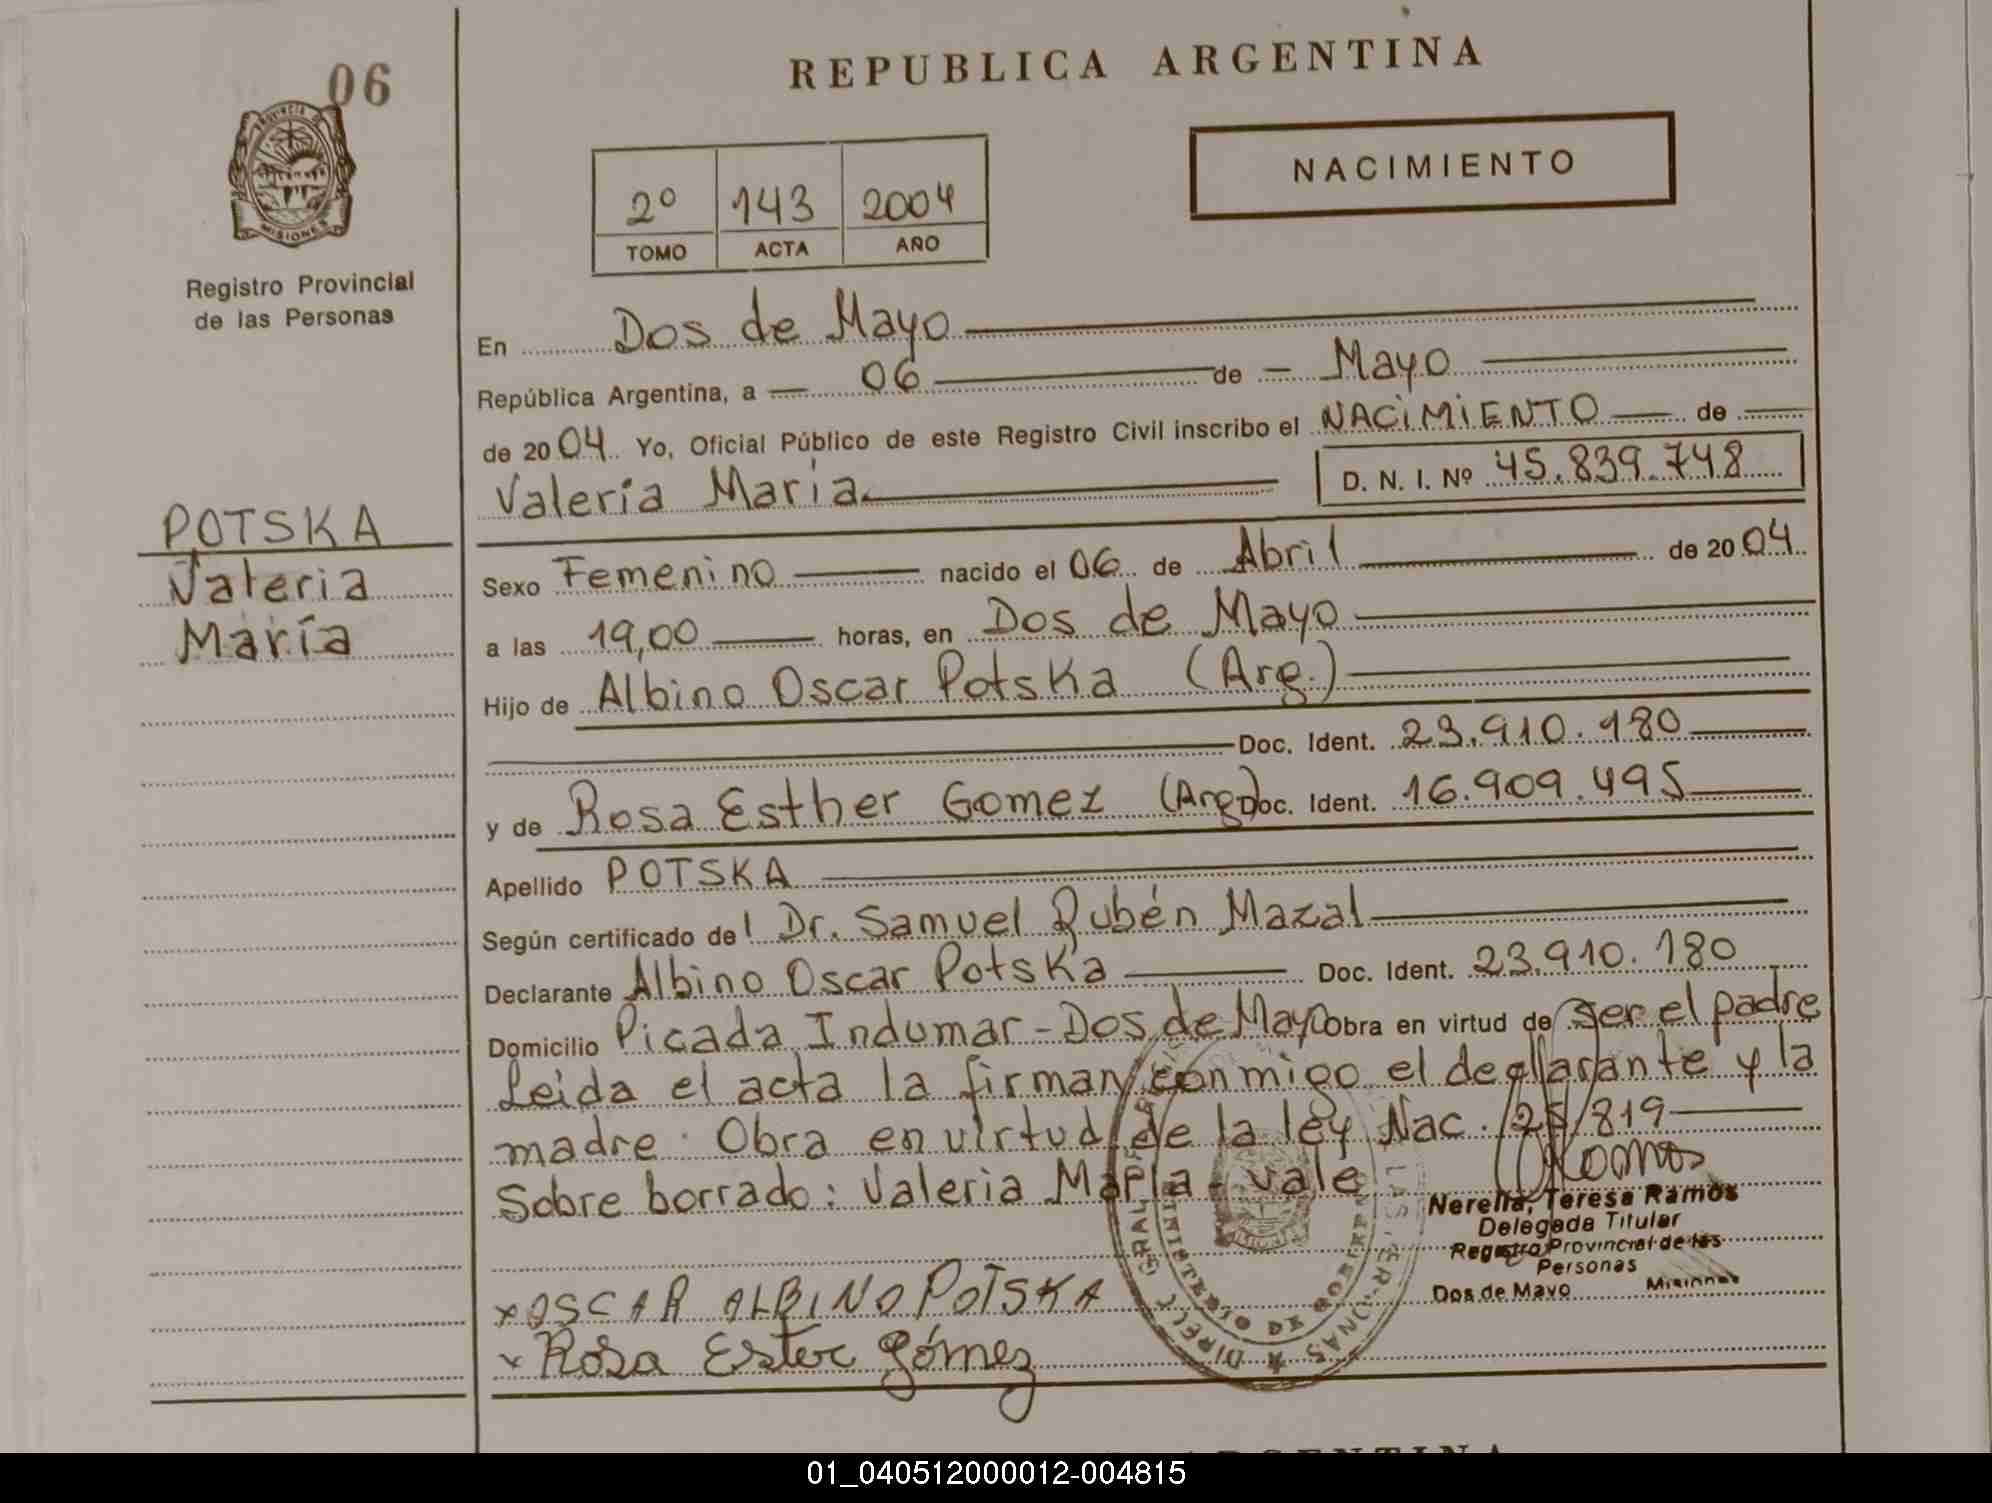 REPUBLICA ARGENTINA
06
PROVINCIA DE
MISIONES
Registro Provincial
de las Personas
NACIMIENTO
2º 143 2004
TOMO ACTA AÑO
En Dos de Mayo
República Argentina, a 06 de Mayo
de 2004. Yo, Oficial Público de este Registro Civil inscribo el NACIMIENTO de
Valeria María D. N. I. Nº 45.839.748
POTSKA
Valeria
María
Sexo Femenino nacido el 06 de Abril de 2004
a las 19,00 horas, en Dos de Mayo
Hijo de Albino Oscar Potska (Arg.)
Doc. Ident. 23.910.180
y de Rosa Esther Gomez (Arg.) Doc. Ident. 16.909.495
Apellido POTSKA
Según certificado del Dr. Samuel Rubén Mazal
Declarante Albino Oscar Potska Doc. Ident. 23.910.180
Domicilio Picada Indumar - Dos de Mayo obra en virtud de ser el padre
Leída el acta la firman conmigo el declarante y la
madre. Obra en virtud de la ley Nac. 25/819
Sobre borrado: Valeria María - vale
Nerella, Teresa Ramos
Delegada Titular
Registro Provincial de las
Personas
Dos de Mayo Misiones
x OSCAR ALBINO POTSKA
x Rosa Ester Gómez
MINISTERIO DE GOBIERNO
01_040512000012-004815